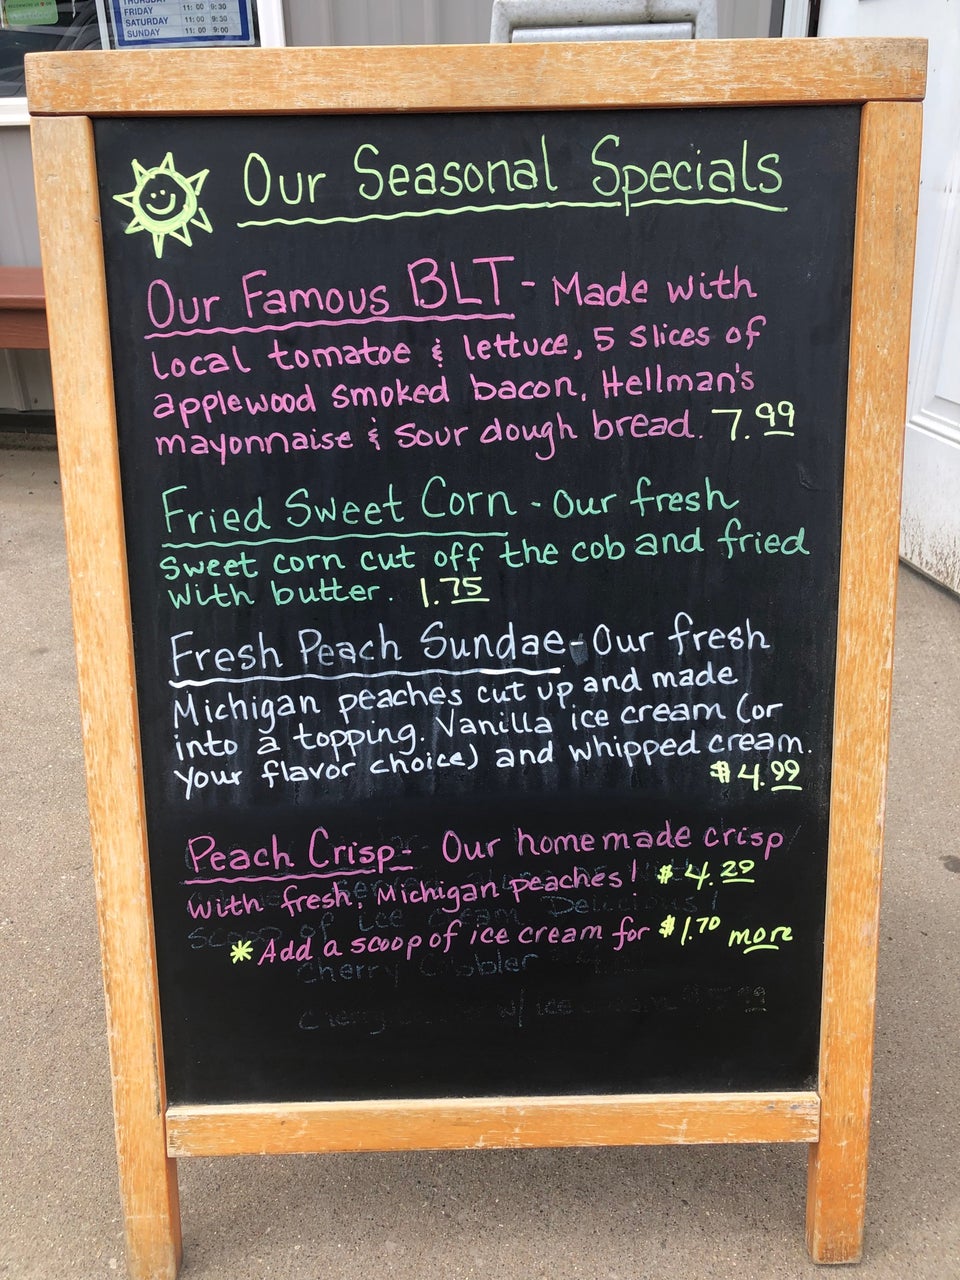 THURSDAY
FRIDAY 11:00 9:30
SATURDAY 11:00 9:30
SUNDAY 11:00 9:00
Our Seasonal Specials
Our Famous BLT - Made with
local tomatoe & lettuce, 5 slices of
applewood smoked bacon, Hellman's
mayonnaise & Sour dough bread. 7.99
Fried Sweet Corn - Our fresh
sweet corn cut off the cob and fried
with butter. 1.75
Fresh Peach Sundae - Our fresh
Michigan peaches cut up and made
into a topping. Vanilla ice cream (or
your flavor choice) and whipped cream.
$4.99
Peach Crisp - Our homemade crisp
with fresh, Michigan peaches! $4.29
scoop of ice cream Delicious!
* Add a scoop of ice cream for $1.70 more
cherry Cobbler
cherry w/ ice